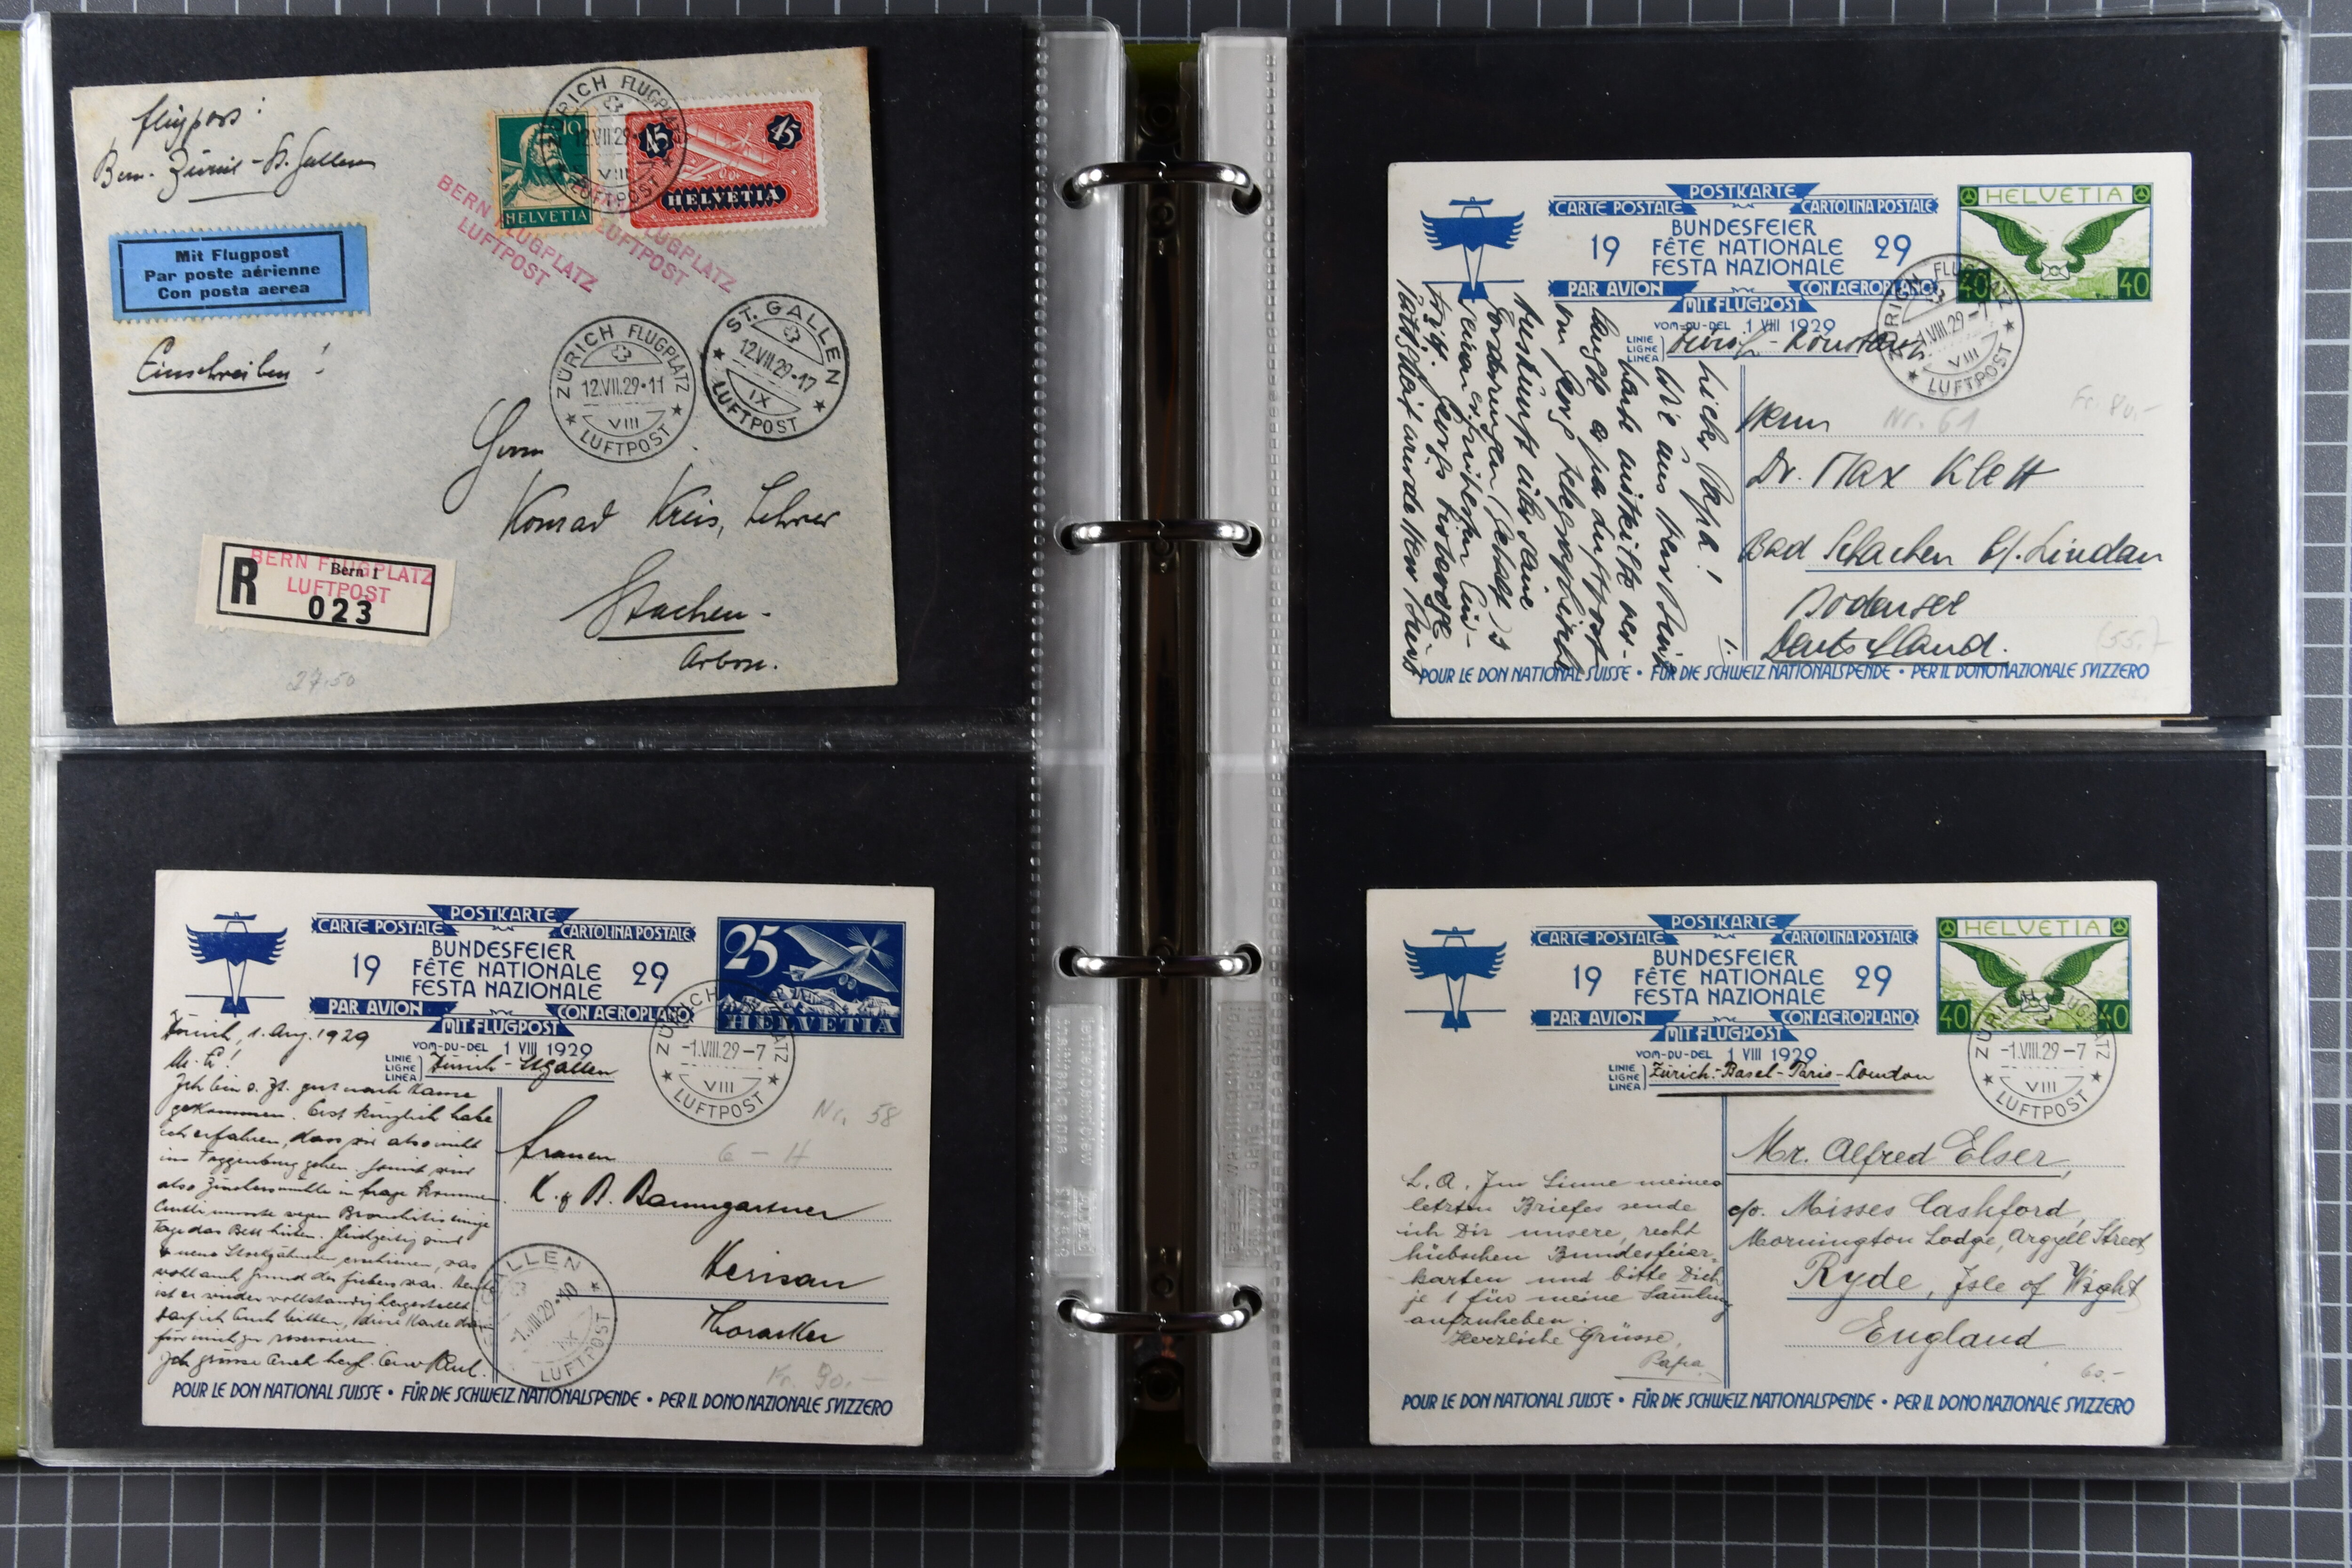 Flugpost:
Bern - Zürich - St. Gallen
10
HELVETIA
45 45
HELVETIA
ZÜRICH FLUGPLATZ
12.VII.29
VIII
LUFTPOST
BERN FLUGPLATZ
LUFTPOST
BERN FLUGPLATZ
LUFTPOST
Mit Flugpost
Par poste aérienne
Con posta aerea
Einschreiben!
ZÜRICH FLUGPLATZ
12.VII.29·11
VIII
LUFTPOST
ST. GALLEN
12.VII.29-17
IX
LUFTPOST
Herrn
Konrad Kreis, Lehrer
Stachen.
Arbon.
R
Bern 1
BERN FLUGPLATZ
LUFTPOST
023
27.50
POSTKARTE
CARTE POSTALE CARTOLINA POSTALE
19 BUNDESFEIER 29
FÊTE NATIONALE
FESTA NAZIONALE
PAR AVION CON AEROPLANO
MIT FLUGPOST
VOM-DU-DEL 1 VIII 1929
LINIE
LIGNE
LINEA
Zürich - St. Gallen
25
HELVETIA
ZÜRICH FLUGPLATZ
-1.VIII.29-7
VIII
LUFTPOST
Zürich, 1. Aug. 1929
M. L.!
Ich bin s. Zt. gut nach Hause
gekommen. Erst kürzlich habe
ich erfahren, dass wir also nicht
ins Toggenburg gehen. Somit wird
also in Frage kommen.
musste wegen Bronchitis einige
Tage das Bett hüten. Gleichzeitig sind
neue Stockzähnchen erschienen, was
wohl auch Grund des Fiebers war. Heute
ist er wieder vollständig hergestellt.
Darf ich Euch bitten, diese Karte dann
für mich zu reservieren.
Ich grüsse Euch herzl. Euer Paul.
Nr. 58
6 - H
Frauen
K. & B. Baumgartner
Herisau
ST. GALLEN
-1.VIII.29-10
IX
LUFTPOST
Fr. 90.-
POUR LE DON NATIONAL SUISSE • FÜR DIE SCHWEIZ. NATIONALSPENDE • PER IL DONO NAZIONALE SVIZZERO
POSTKARTE
CARTE POSTALE CARTOLINA POSTALE
19 BUNDESFEIER 29
FÊTE NATIONALE
FESTA NAZIONALE
PAR AVION CON AEROPLANO
MIT FLUGPOST
VOM-DU-DEL 1 VIII 1929
LINIE
LIGNE
LINEA
Zürich - Konstanz
HELVETIA
40 40
ZÜRICH FLUGPLATZ
-1.VIII.29-7
VIII
LUFTPOST
Lieber Papa!
Wie aus
Auskunft über seine
Nr. 61
Fr. 80.-
Herrn
Dr. Max Klett
Bad Schachen b/. Lindau
Bodensee
Deutschland.
(55.-)
POUR LE DON NATIONAL SUISSE • FÜR DIE SCHWEIZ. NATIONALSPENDE • PER IL DONO NAZIONALE SVIZZERO
POSTKARTE
CARTE POSTALE CARTOLINA POSTALE
19 BUNDESFEIER 29
FÊTE NATIONALE
FESTA NAZIONALE
PAR AVION CON AEROPLANO
MIT FLUGPOST
VOM-DU-DEL 1 VIII 1929
LINIE
LIGNE
LINEA
Zürich-Basel-Paris-London
HELVETIA
40 40
ZÜRICH FLUGPLATZ
-1.VIII.29-7
VIII
LUFTPOST
L. A. Im Sinne meines
letzten Briefes sende
ich Dir unsere, recht
hübschen Bundesfeier-
karten und bitte Dich
je 1 für meine Sammlung
aufzuheben.
Herzliche Grüsse,
Papa
Mr. Alfred Elser,
c/o. Misses Cashford,
Mornington Lodge, Argyll Street
Ryde, Isle of Wight
England
60.-
POUR LE DON NATIONAL SUISSE • FÜR DIE SCHWEIZ. NATIONALSPENDE • PER IL DONO NAZIONALE SVIZZERO